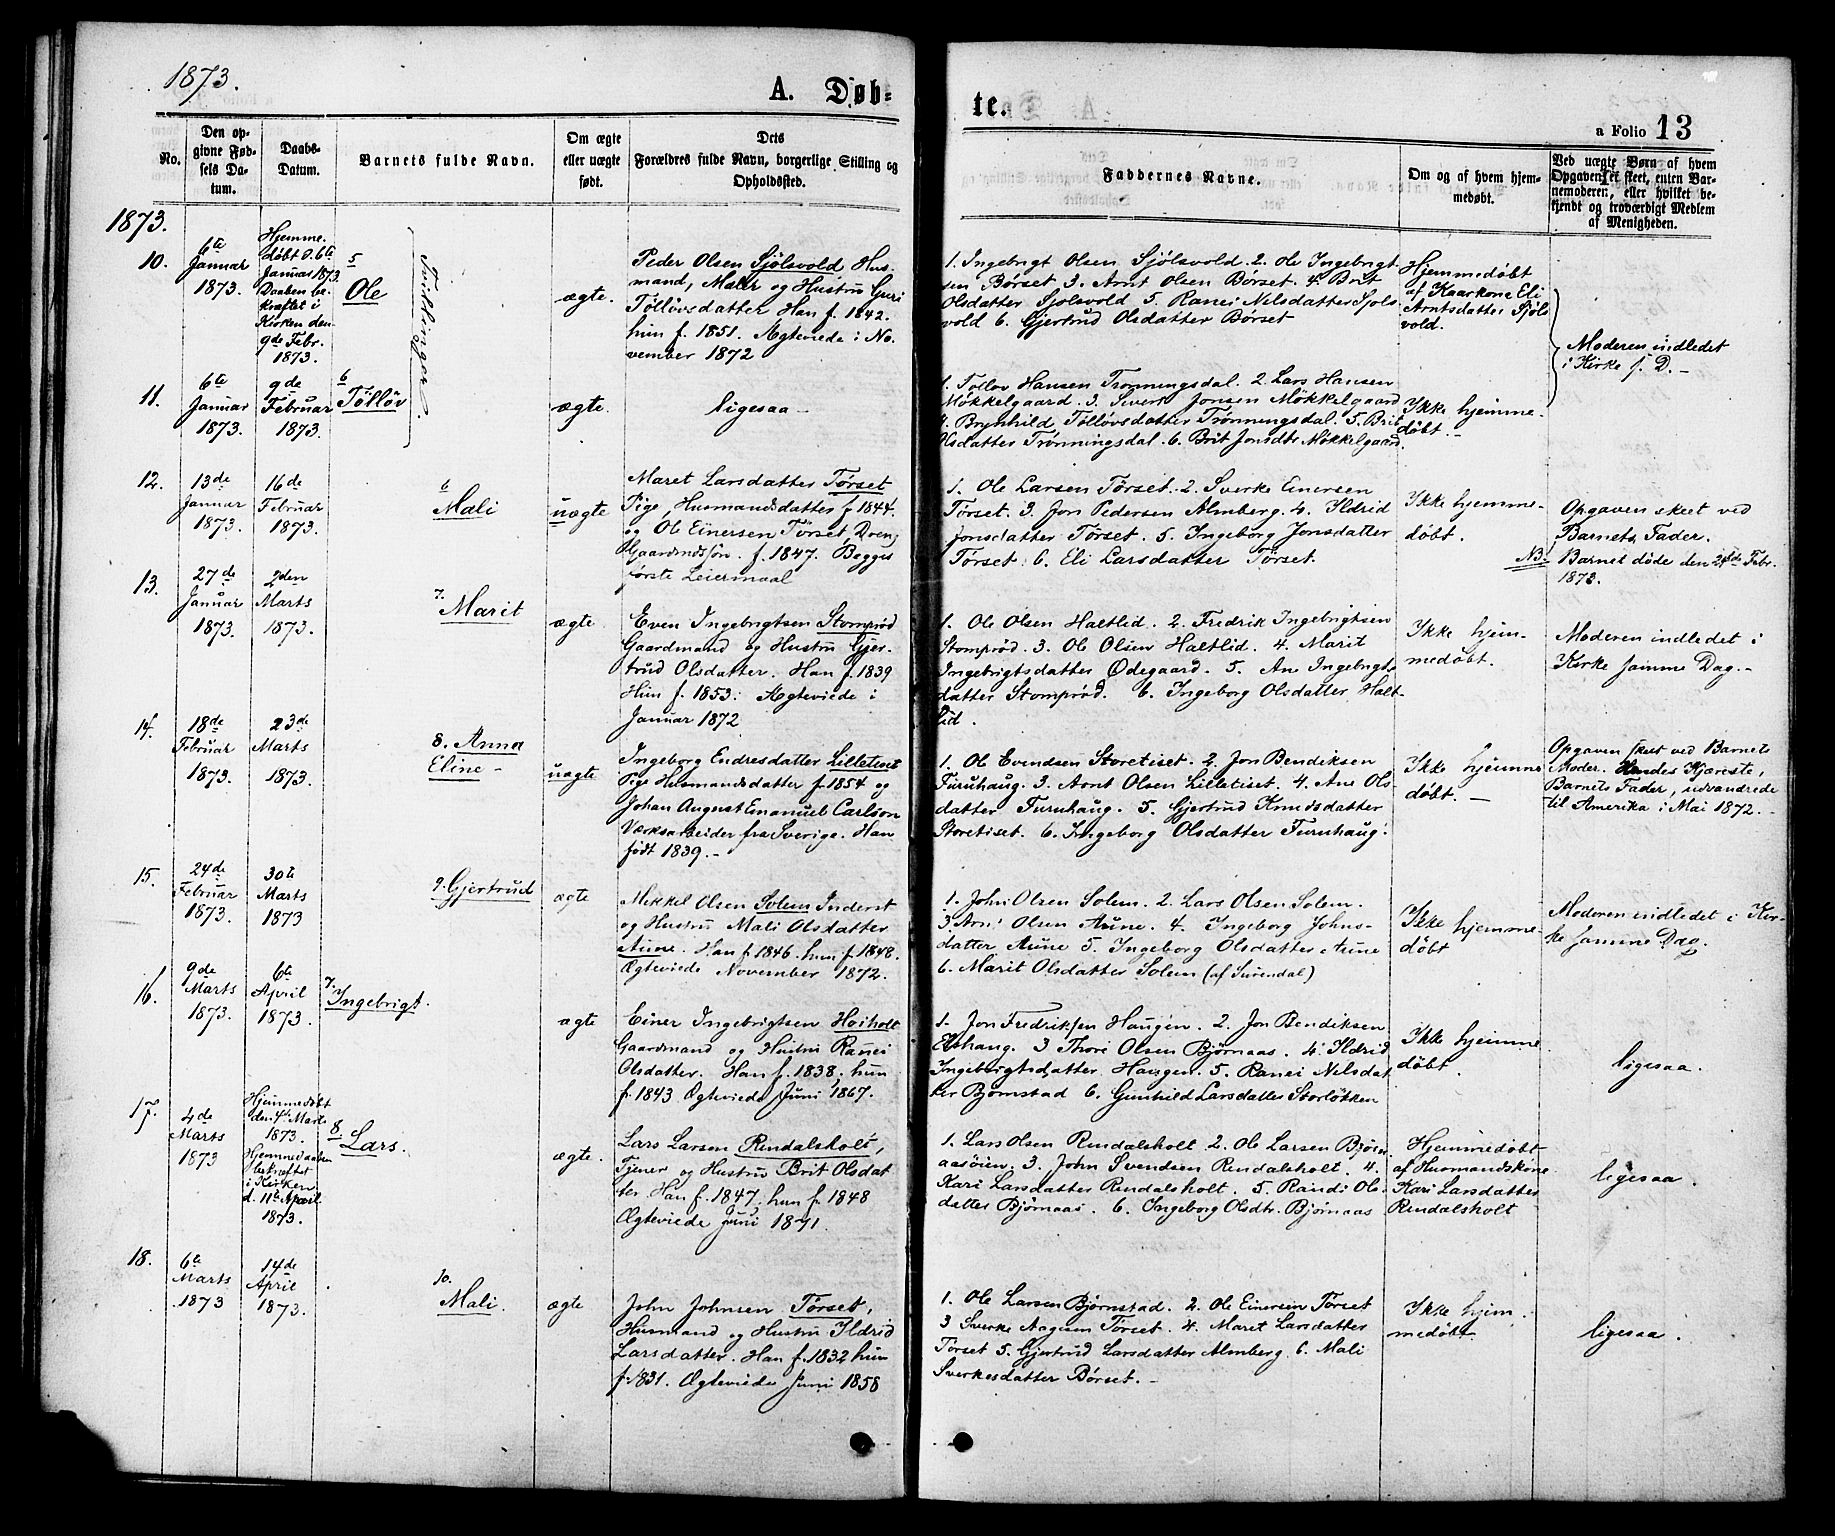 1873.
A. Døb-
te.
a Folio 13
No.
Den op-
givne Fød-
sels Da-
tum.
Daabs-
Datum.
Barnets fulde Navn.
Om ægte
eller uægte
født.
Dets
Forældres fulde Navn, borgerlige Stilling og
Opholdssted.
Faddernes Navne.
Om og af hvem hjem-
medøbt.
Ved uægte Børn af hvem
Opgaven er skeet, enten Bar-
nemoderen, eller hvilket be-
kjendt og troværdigt Medlem
af Menigheden.
1873.
10.
6te
Januar
1873.
Hjemme-
døbt d. 6te
Januar 1873.
Daaben be-
kræftet i
Kirken den
9de Febr.
1873.
5
Ole
Tvillinger.
ægte.
Peder Olsen Sjølsvold, Hus-
mand, Maler og Hustru Guri
Tølløvsdatter Han f. 1842.
hun f. 1851. Ægteviede i No-
vember 1872
1. Ingebrigt Olsen Sjølsvold. 2. Ole Ingebrigt-
sen Børset. 3. Arnt Olsen Børset. 4. Brit
Olsdatter Sjølsvold 5. Ranei Nilsdatter Sjøls-
vold 6. Gjertrud Olsdatter Børset
Hjemmedøbt
af Kaarkone Eli
Arntsdatter Sjøls-
vold.
Moderen indledet
i Kirke s. D. -
11.
6te
Januar
1873.
9de
Februar
1873.
6
Tølløv
ægte.
ligesaa -
1. Tølløv Hansen Trønningsdal. 2. Lars Hansen
Møkkelgaard. 3. Sivert Jonsen Møkkelgaard
4. Brynhild Tølløvsdatter Trønningsdal. 5. Brit
Olsdatter Trønningsdal. 6. Brit Jonsdtr Møkkelgaard.
Ikke hjemme-
døbt. -
12.
13de
Januar
1873.
16de
Februar
1873.
6
Mali
uægte
Maret Larsdatter Tørset
Pige, Husmandsdatter f 1844.
og Ole Einersen Tørset, Dreng
Gaardmdssøn. f. 1847. Begges
første Leiermaal
1. Ole Larsen Tørset. 2. Sverke Einersen
Tørset. 3. Jon Pedersen Almberg. 4. Ildrid
Jonsdatter Tørset. 5. Ingeborg Jonsdatter
Tørset. 6. Eli Larsdatter Tørset.
Ikke hjemme-
døbt.
NB.
Opgaven skeet ved
Barnets Fader.
Barnet døde den 21de Febr.
1873.
13.
27de
Januar
1873.
2den
Marts
1873.
7.
Marit
ægte.
Even Ingebrigtsen Stomprød
Gaardmand og Hustru Gjer-
trud Olsdatter. Han f. 1839
Hun f. 1853. Ægteviede i
Januar 1872
1. Ole Olsen Haltlid. 2. Fredrik Ingebrigtsen
Stomprød. 3. Ole Olsen Haltlid. 4. Marit
Ingebrigtsdatter Ødegaard. 5. Ane Ingebrigts-
datter Stomprød. 6. Ingeborg Olsdatter Halt-
lid.
Ikke hjem-
medøbt.
Moderen indledet i
Kirke samme Dag. -
14.
18de
Februar
1873.
23de
Marts
1873.
8. Anna
Eline -
uægte
Ingeborg Endresdatter Lilletiset
Pige Husmandsdatter f. 1854 og
Johan August Emanuel Carlson
Værksarbeider fra Sverige. Han
født 1839. -
1. Ole Evendsen Storetiset. 2. Jon Bendiksen
Furuhaug. 3. Arnt Olsen Lilletiset. 4. Ane Ols-
datter Furuhaug. 5. Gjertrud Knudsdatter
Storetiset. 6. Ingeborg Olsdatter Furuhaug.
Ikke hjemme
døbt. -
Opgaven skeet ved Barnets
Moder. Hendes Kjæreste,
Barnets Fader, udvandrede
til Amerika i Mai 1872. -
15.
24de
Februar
1873.
30te
Marts
1873
9. Gjertrud
ægte
Mikkel Olsen Solem Inderst
og Hustru Mali Olsdatter
Aune. Han f. 1846. hun f. 1848.
Ægteviede November 1872.
1. John Olsen Solem. 2. Lars Olsen Solem.
3. Arnt Olsen Aune. 4. Ingeborg Johns-
datter Aune 5. Ingeborg Olsdatter Aune
6. Marit Olsdatter Solem (af Surendal)
Ikke hjemme-
døbt
Moderen indledet i Kir-
ke samme Dag.
16.
9de
Marts
1873.
6te
April
1873.
7.
Ingebrigt.
ægte
Einer Ingebrigtsen Hoiholt
Gaardmand og Hustru Ranei
Olsdatter. Han f. 1838. hun
f. 1843 Ægteviede Juni 1867.
1. Jon Fredriksen Haugen. 2. Jon Bendiksen
Elshaug. 3 Thore Olsen Bjørnaas. 4. Ildrid
Ingebrigtsdatter Haugen. 5. Ranei Nilsdat-
ter Bjørnstad 6. Gunhild Larsdatter Storløkken
Ikke hjemme
døbt.
ligesaa.
17.
4de
Marts
1873
Hjemmedøbt
den 4de Marts
1873.
Hjemmedaaben
bekræftet
i Kirken
d. 11te April
1873.
8
Lars.
ægte.
Lars Larsen Rindalsholt,
Tjener og Hustru Brit Olsdat
ter. Han f. 1847. hun f. 1848
Ægteviede Juni 1871.
1. Lars Olsen Rindalsholt 2. Ole Larsen Bjørn-
aasøien. 3. John Svendsen Rindalsholt. 4.
Kari Larsdatter Rindalsholt. 5. Randi Ols-
datter Bjørnaas. 6. Ingeborg Olsdtr. Bjørnaas
Hjemmedøbt
af Husmandskone
Kari Larsdatter
Rindalsholt
ligesaa.
18.
6te
Marts
1873
14de
April
1873.
10.
Mali.
ægte
John Johnsen Tørset,
Husmand og Hustru Ildrid
Larsdatter. Han f. 1832 hun
f. 1831. Ægteviede Juni 1858
1. Ole Larsen Bjørnstad. 2. Ole Einersen Tørset
3 Sverke Aagesen Tørset. 4. Maret Larsdatter
Tørset 5. Gjertrud Larsdatter Almberg. 6. Mali
Sverkesdatter Børset. -
Ikke hjem-
medøbt
ligesaa.